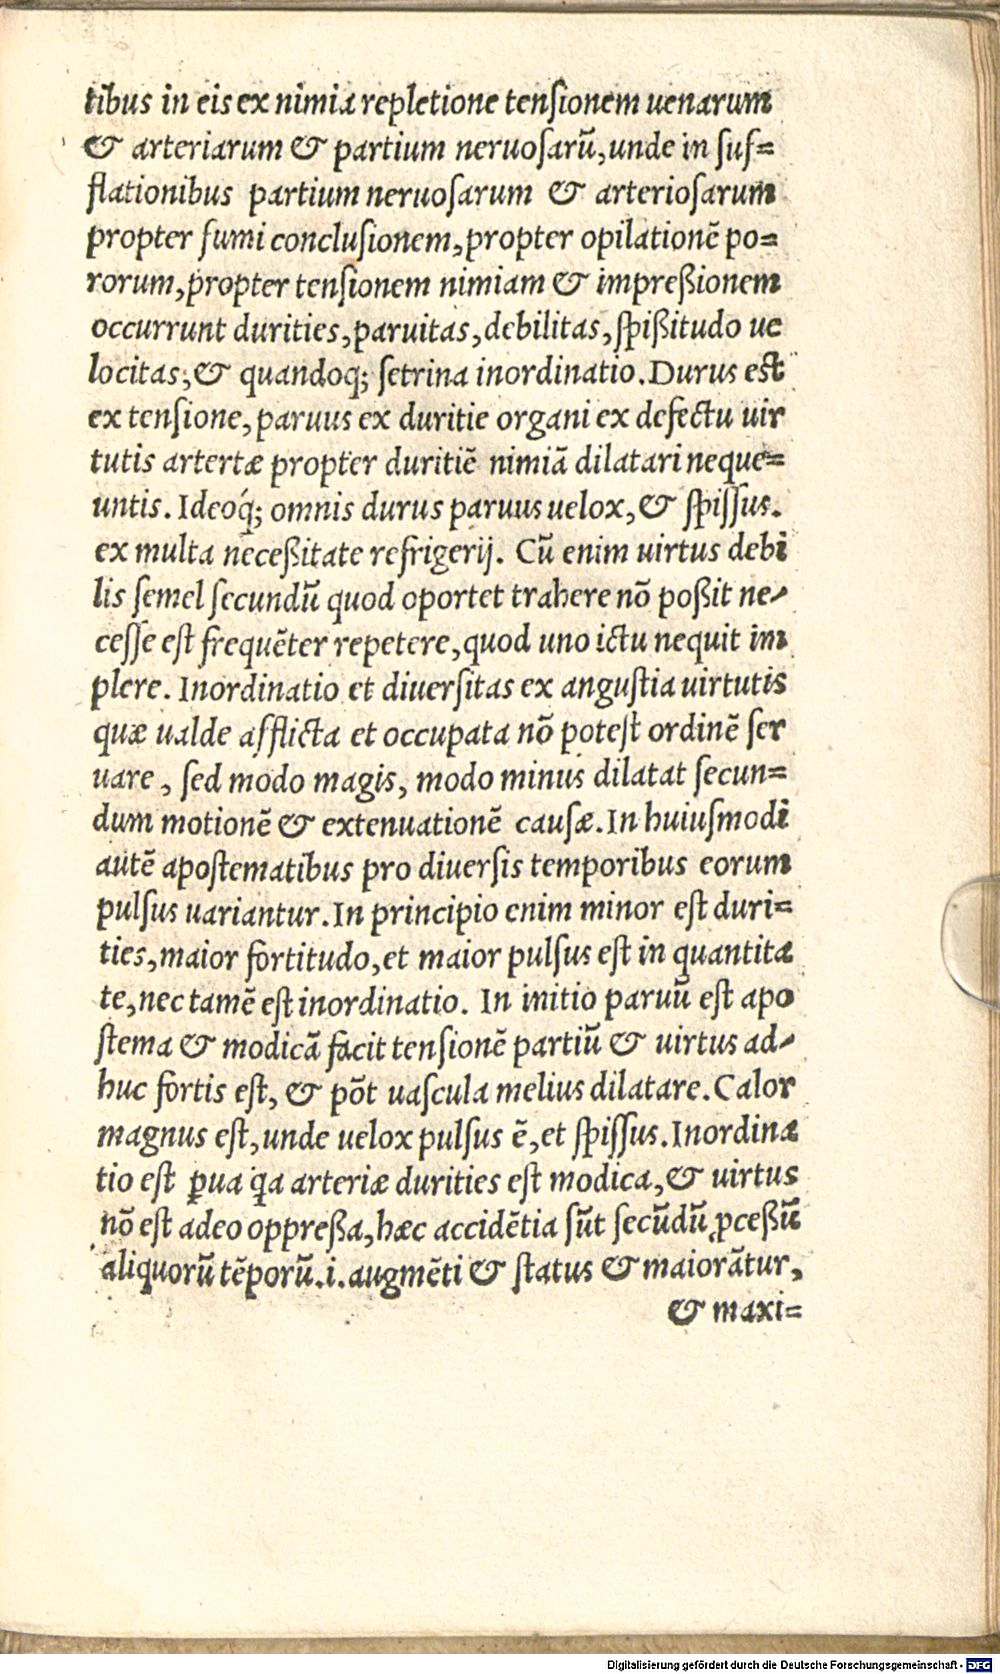 tibus in eis ex nimia repletione tensionem uenarum
& arteriarum & partium neruosarũ, unde in suf=
flationibus partium neruosarum & arteriosarum
propter fumi conclusionem, propter opilationẽ po=
rorum, propter tensionem nimiam & impreßionem
occurrunt durities, paruitas, debilitas, spißitudo ue
locitas, & quandoq; setrina inordinatio. Durus est
ex tensione, paruus ex duritie organi ex defectu uir
tutis artertæ propter duritiẽ nimiã dilatari neque=
untis. Ideoq́; omnis durus paruus uelox, & spissus.
ex multa neceßitate refrigerij. Cũ enim uirtus debi
lis semel secundũ quod oportet trahere nõ poßit ne-
cesse est frequẽter repetere, quod uno ictu nequit im
plere. Inordinatio et diuersitas ex angustia uirtutis
quæ ualde afflicta et occupata nõ potest ordinẽ ser
uare, sed modo magis, modo minus dilatat secun=
dum motionẽ & extenuationẽ causæ. In huiusmodi
autẽ apostematibus pro diuersis temporibus eorum
pulsus uariantur. In principio enim minor est duri=
ties, maior fortitudo, et maior pulsus est in quantita
te, nec tamẽ est inordinatio. In initio paruũ est apo
stema & modicã facit tensionẽ partiũ & uirtus ad-
huc fortis est, & põt uascula melius dilatare. Calor
magnus est, unde uelox pulsus ẽ, et spissus. Inordina
tio est ꝑua q̃a arteriæ durities est modica, & uirtus
nõ est adeo oppreßa, hæc accidẽtia sũt secũdũ ꝓceßũ
aliquorũ tẽporũ .i. augmẽti & status & maiorãtur,
& maxi=
Digitalisierung gefördert durch die Deutsche Forschungsgemeinschaft - DFG